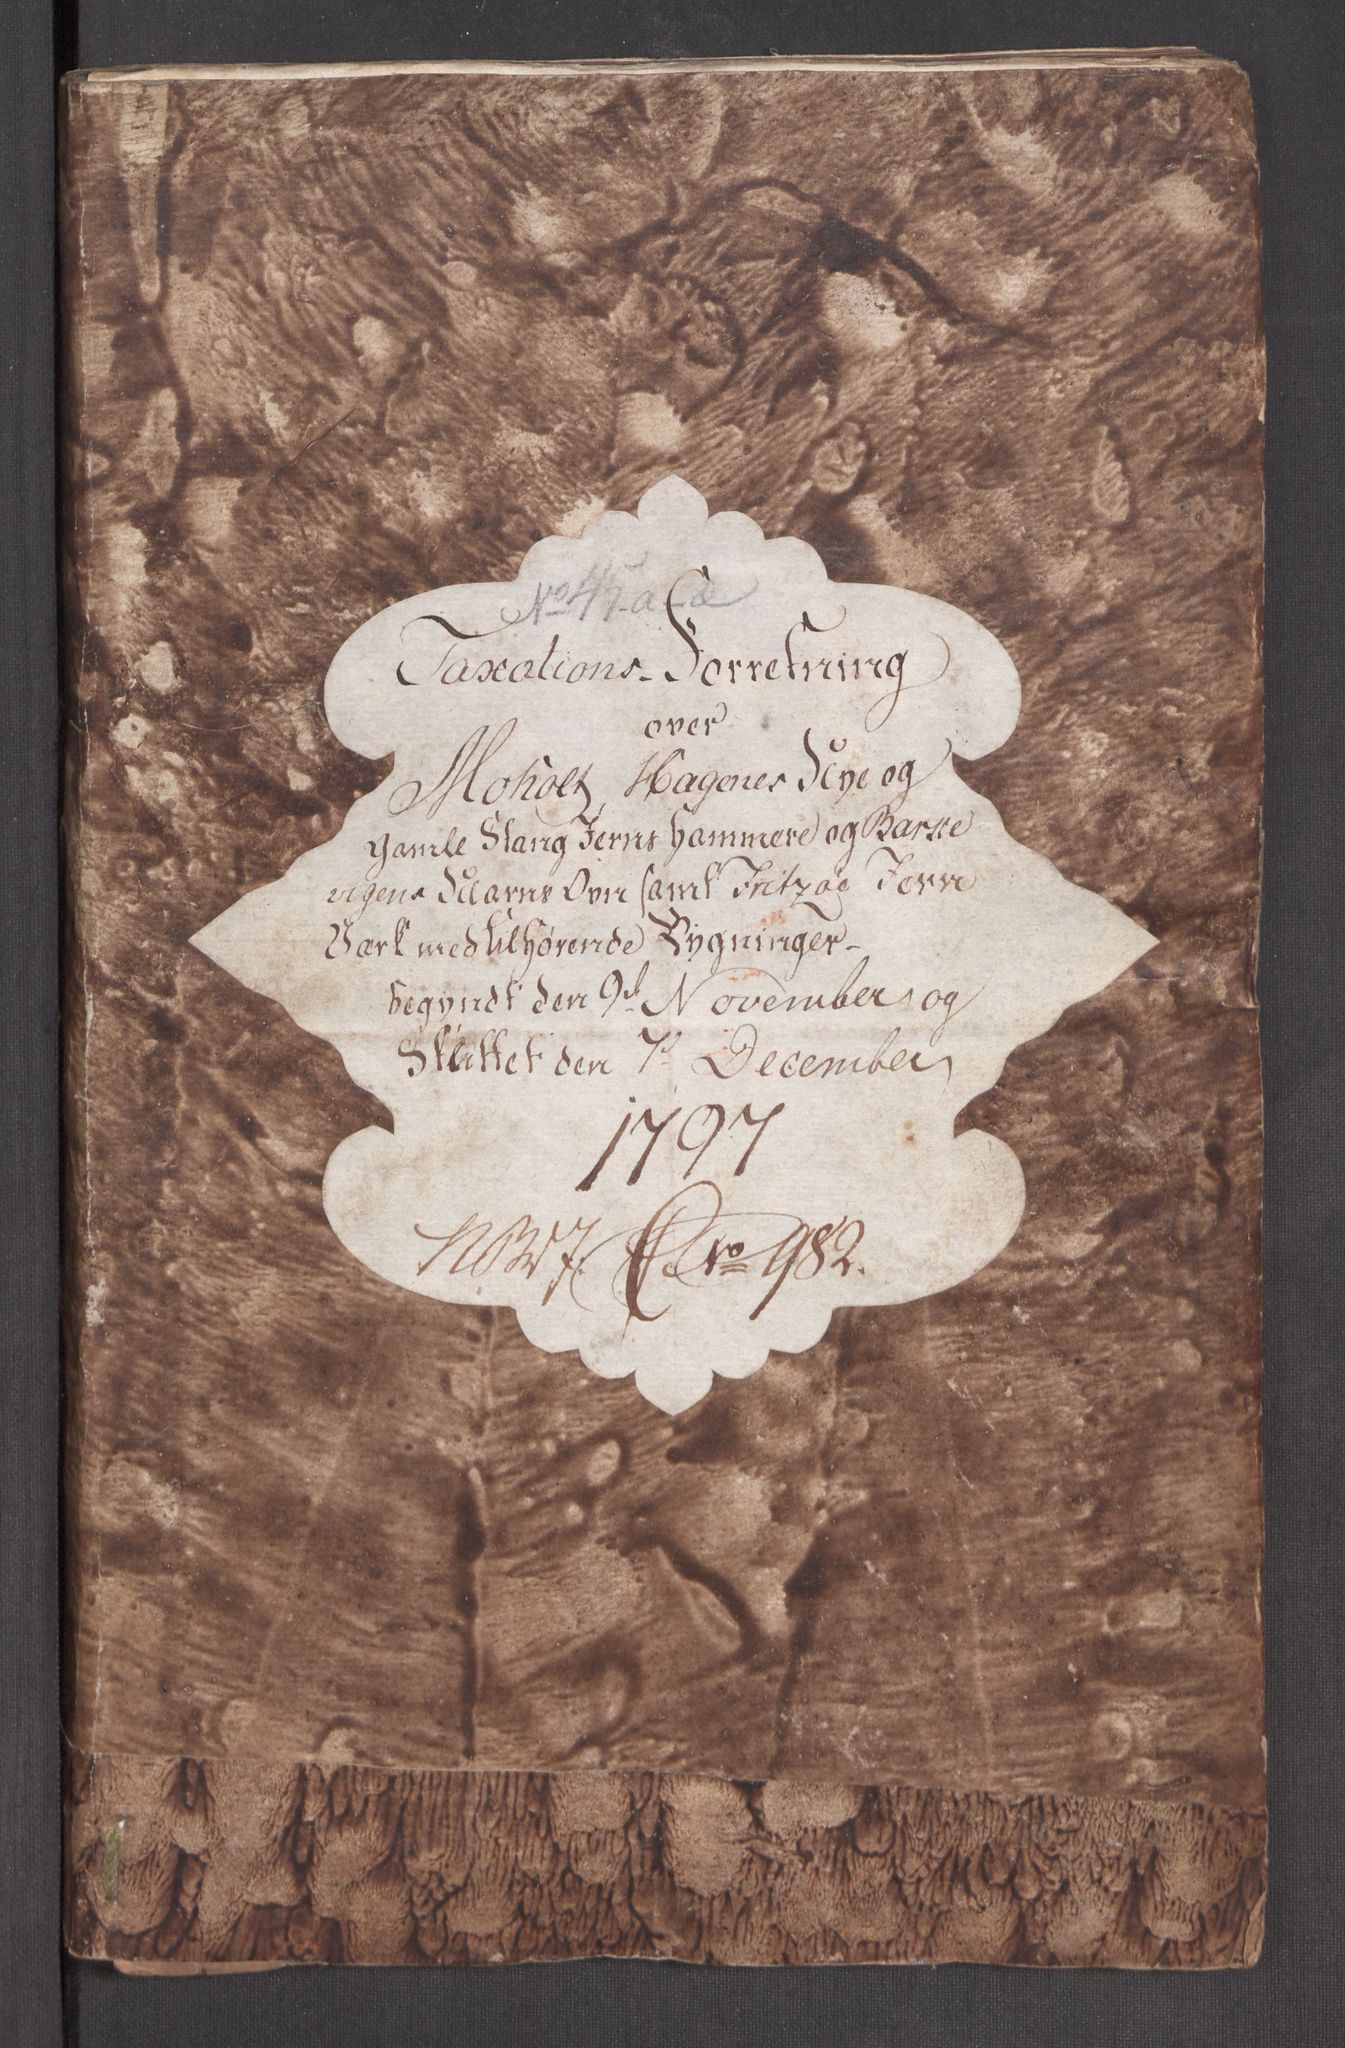 No 45 a
Taxations-Forretning
over
Moholt, Hagenes Nye og
gamle Stang Jerns hammere og Barke
vigens Maens Ovn samt Fritzøe Jern
Værk med tilhørende Bygninger
begyndt den 9d November og
Sluttet den 7d December
1797
No 982.